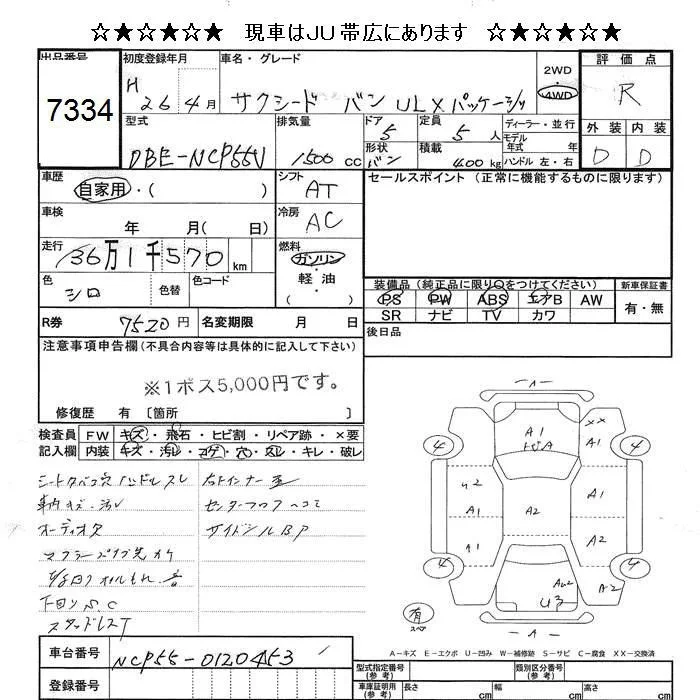 ☆★☆★☆★ 現車はJU帯広にあります ☆★☆★☆★
出品番号 初度登録年月 車名・グレード 2WD 4WD 評価点
7334 H 26 4月 サクシード バン ULXパッケージ R
型式 排気量 ドア 5 定員 5人 ディーラー・並行 外装 内装
DBE-NCP55V 1500cc 形状 バン 積載 400kg モデル年式 年 ハンドル 左・右 D D
車歴 自家用・( ) シフト AT セールスポイント(正常に機能するものに限ります)
車検 年 月( 日) 冷房 AC
走行 36万1千570km 燃料 ガソリン
色 シロ 色替 色コード 軽・油 ( ) 装備品(純正品に限り○をつけてください) 新車保証書
PS PW ABS エアB AW 有・無
SR ナビ TV カワ
R券 7520円 名変期限 月 日 後日品
注意事項申告欄(不具合内容等は具体的に記入して下さい)
※1ボス5,000円です。
修復歴 有 〔箇所
検査員 FW キズ・飛石・ヒビ割・リペア跡・×要
記入欄 内装 キズ・汚レ・コゲ・穴・スレ・キレ・破レ
シートタバコ穴 ハンドルスレ 右インナー
車内キズ・汚レ センターフロアヘコミ
オーディオ欠 サイドシルBP
マフラー
下回りS.C
スタッドレスT
A A1 XX A1 4 4
U2 A1 A2 A1 A1 A2
4 4 A2 U3 A
有 スペア
A-キズ E-エクボ U-凹み W-補修跡 S-サビ C-腐食 XX-交換済
車台番号 NCP55-0120453
型式指定番号(参考) 類別区分番号(参考)
登録番号 車庫証明用(参考) 長さ cm 幅 cm 高さ cm